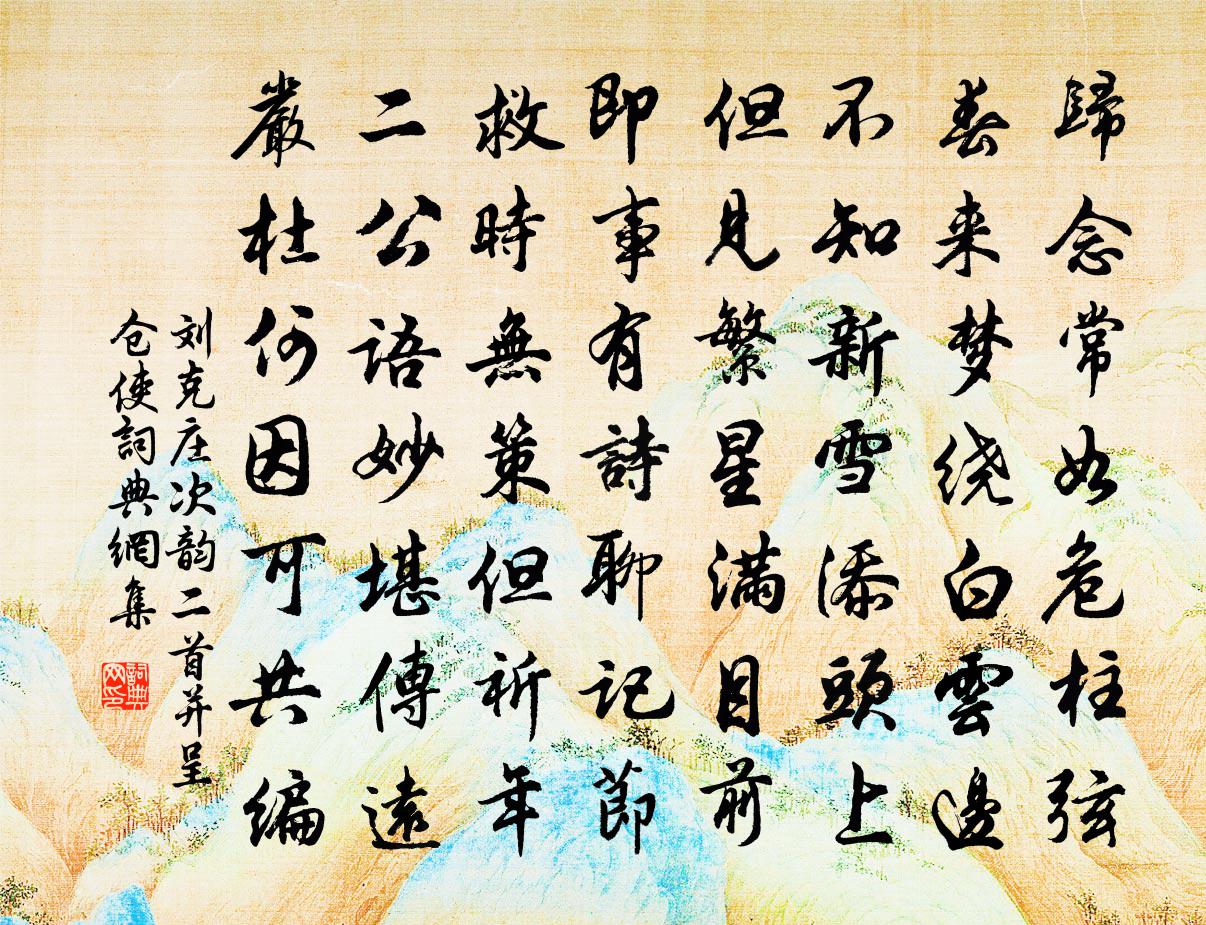 歸念常如危柱弦
春来梦绕白雲邊
不知新雪添頭上
但見繁星滿目前
即事有詩聊記節
救時無策但祈年
二公語妙堪傳遠
嚴杜何因可共编
刘克庄次韵二首并呈
仓使詞典網集
詞典
网印